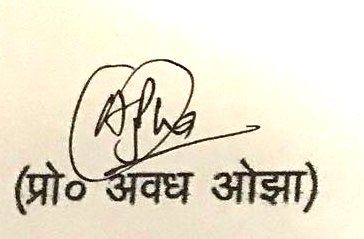 (प्रो० अवध ओझा)